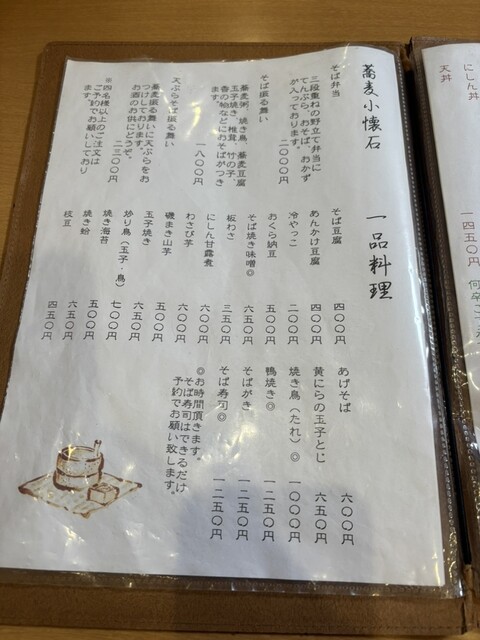 天丼
にしん丼
一四五〇円
何卒ご
蕎麦小懐石
そば弁当
三段重ねの野立て弁当に
てんぷら、おそば、おかず
が入っております。
二〇〇〇円
そば振る舞い
蕎麦粥、焼き鳥、蕎麦豆腐
玉子焼き、椎茸、竹の子、
香の物などにおそばがつき
ます。
一八〇〇円
天ぷらそば振る舞い
蕎麦振る舞いに天ぷらをお
つけしております。
お酒のお供にどうぞ。
二三〇〇円
※四名様以上のご注文は
ご予約でお願いしており
ます。
一品料理
そば豆腐 四〇〇円
あんかけ豆腐 四〇〇円
冷やっこ 二〇〇円
おくら納豆 五〇〇円
そば焼き味噌◎ 六五〇円
板わさ 三五〇円
にしん甘露煮 六〇〇円
わさび芋 六〇〇円
磯まき山芋 五〇〇円
玉子焼き 六五〇円
炒り鳥(玉子・鳥) 七〇〇円
焼き海苔 五〇〇円
焼き蛤 六五〇円
枝豆 四五〇円
あげそば 六〇〇円
黄にらの玉子とじ 六五〇円
焼き鳥(たれ)◎ 一〇〇〇円
鴨焼き◎ 一二五〇円
そばがき 一二五〇円
そば寿司◎ 一二五〇円
◎お時間頂きます。
そば寿司はできるだけ
予約でお願い致します。